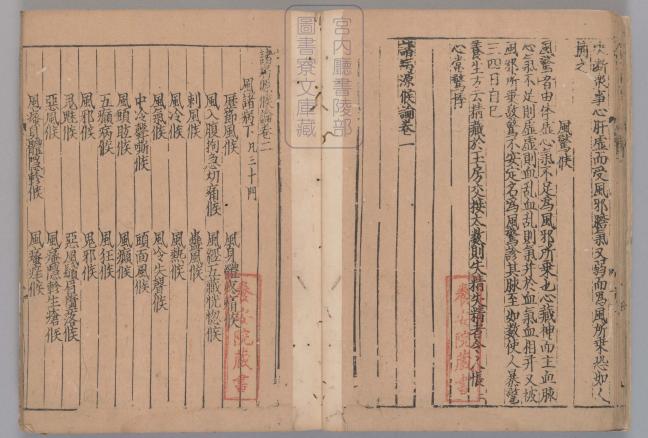 決斷衆事心肝虛而受風邪膽氣又弱而爲風所乘恐如人
捕之
風驚候
風驚者由体虛心氣不足爲風邪所乘也心藏神而主血脉
心氣不足則虛虛則血乱血乱則氣并於血氣血相并又被
風邪所乘故驚不安定名爲風驚診其脉至如數使人暴驚
三四日自已
養生方云精藏於玉房交接太數則失精失精者令人悵〻
心常驚悸
諸病源候論卷一
養安院藏書
宮内廳書陵部
圖書寮文庫藏
諸病源候論卷二
風諸病下凡三十門
歷節風候 風身體疼痛候
風入腹拘急切痛候 風經五藏恍惚候
刺風候 蠱風候
風冷候 風熱候
風氣候 風冷失聲候
中冷聲嘶候 頭面風候
風頭眩候 風癲候
五癲病候 風狂候
風邪候 鬼邪候
鬼魅候 惡風鬚眉墮落候
惡風候 風瘙癮軫生瘡候
風瘙身體癮軫候 風瘙痒候
養安院藏書